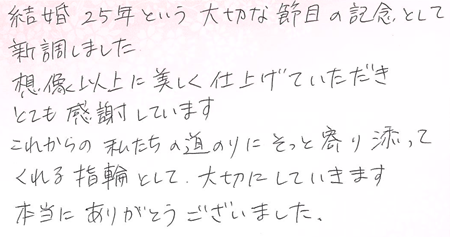 結婚25年という大切な節目の記念として
新調しました
想像以上に美しく仕上げていただき
とても感謝しています
これからの私たちの道のりにそっと寄り添って
くれる指輪として、大切にしていきます
本当にありがとうございました。